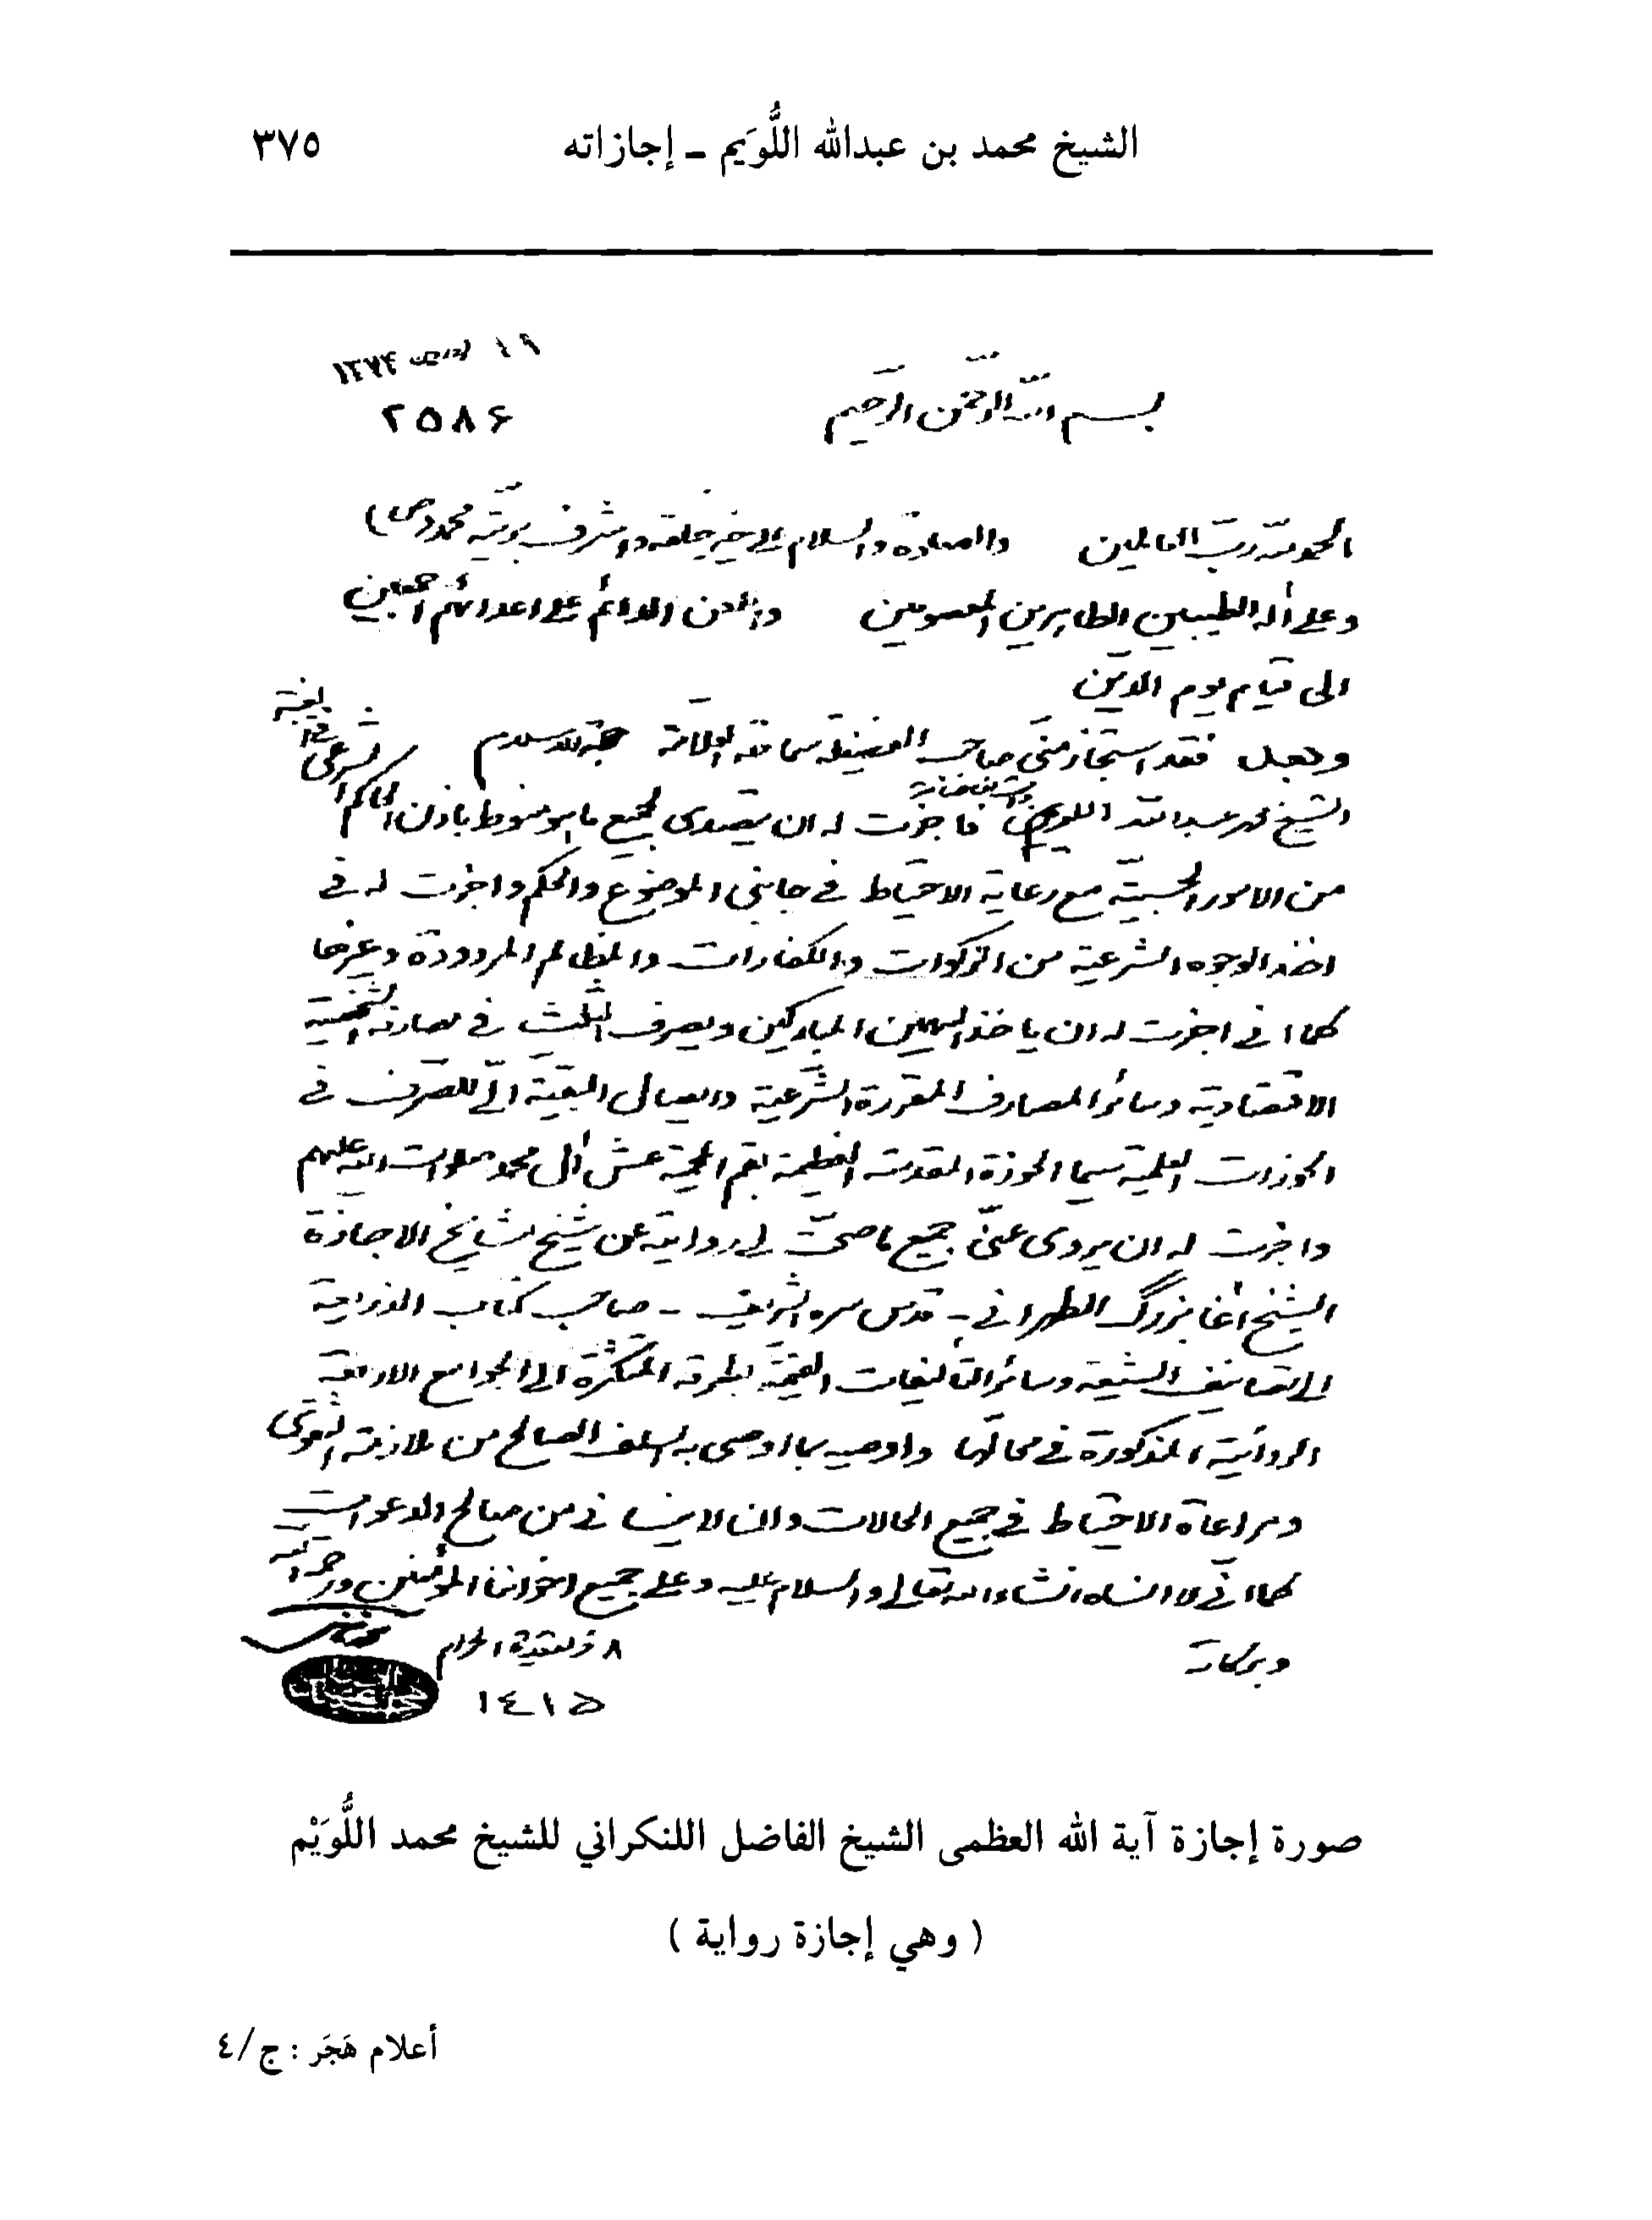 الشيخ محمد بن عبدالله اللُّوَيم ـ إجازاته ٣٧٥
١٩ ١٣٧٤
٢٥٨۶
بسم الله الرحمن الرحيم
الحمد لله ربّ العالمين والصلاة والسلام على خير خلقه واشرف بريّته محمد (ص)
وعلى آله الطيبين الطاهرين المعصومين واللعن الدائم على اعدائهم أجمعين
الى قيام يوم الدين
وبعد فقد استجاز منّي صاحب الفضيلة سماحة العلامة حجة الاسلام
الشيخ محمد عبد الله اللويم فاجزت له ان يتصدى لجميع ما هو منوط باذن الحاكم الشرعي
من الامور الحسبيّة مع رعاية الاحتياط في جانبي الموضوع والحكم واجزت له في
اخذ الوجوه الشرعية من الزكوات والكفارات والمظالم المردودة وغيرها
كما اني اجزت له ان ياخذ السهمين المباركين ويصرف الثلث في مصارفه الشخصية
الاقتصادية وسائر المصارف المقررة الشرعية وايصال البقية اليّ للصرف في
الحوزات العلمية سيما الحوزة المقدسة العظيمة بقم المحمية عش آل محمد صلوات الله عليهم
واجزت له ان يروى عنّي جميع ما صحّت لي روايته عن شيخ مشايخ الاجازة
الشيخ آغا بزرگ الطهراني - قدس سره الشريف - صاحب كتاب الذريعة
الى تصانيف الشيعة وسائر التأليفات القيّمة بطرقه المتكثرة الى الجوامع الاربعة
الروائية المذكورة في محالّها واوصيه بما اوصى به السلف الصالح من ملازمة التقوى
ومراعاة الاحتياط في جميع الحالات وان لا ينساني من صالح الدعوات
كما اني لا انساه انشاء الله تعالى والسلام عليه وعلى جميع اخواننا المؤمنين ورحمة الله
وبركاته
٨ ذي القعدة الحرام
١٤١٥
صورة إجازة آية الله العظمى الشيخ الفاضل اللنكراني للشيخ محمد اللُّوَيْم
( وهي إجازة رواية )
أعلام هَجَر : ج/٤